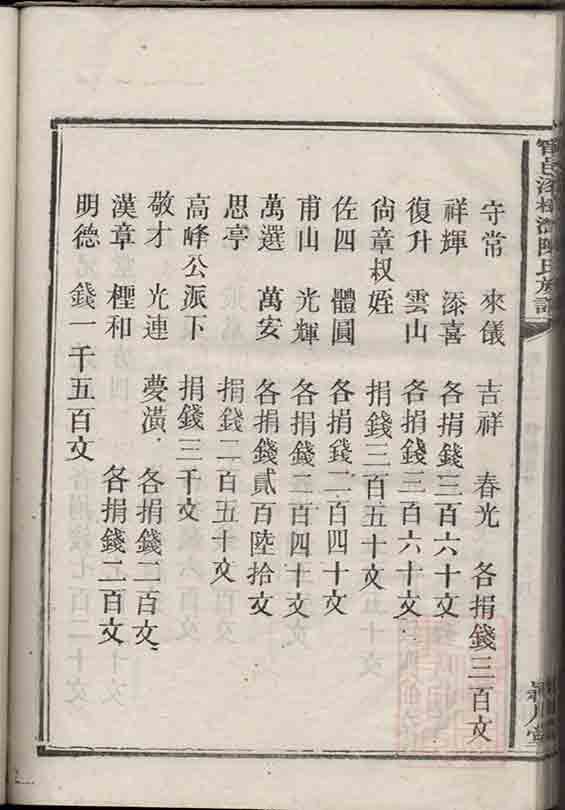 守常 來儀 吉祥 春光 各捐錢三百文
祥輝 添喜 各捐錢三百六十文
復升 雲山 各捐錢三百六十文
尙章叔姪 捐錢三百五十文
佐四 體圓 各捐錢二百四十文
甫山 光輝 各捐錢二百四十文
萬選 萬安 各捐錢貳百陸拾文
思亭 捐錢二百五十文
高峰公派下 捐錢三千文
敬才 光連 夢潢 各捐錢二百文
漢章 檉和 各捐錢二百文
明德 錢一千五百文
陳氏族譜